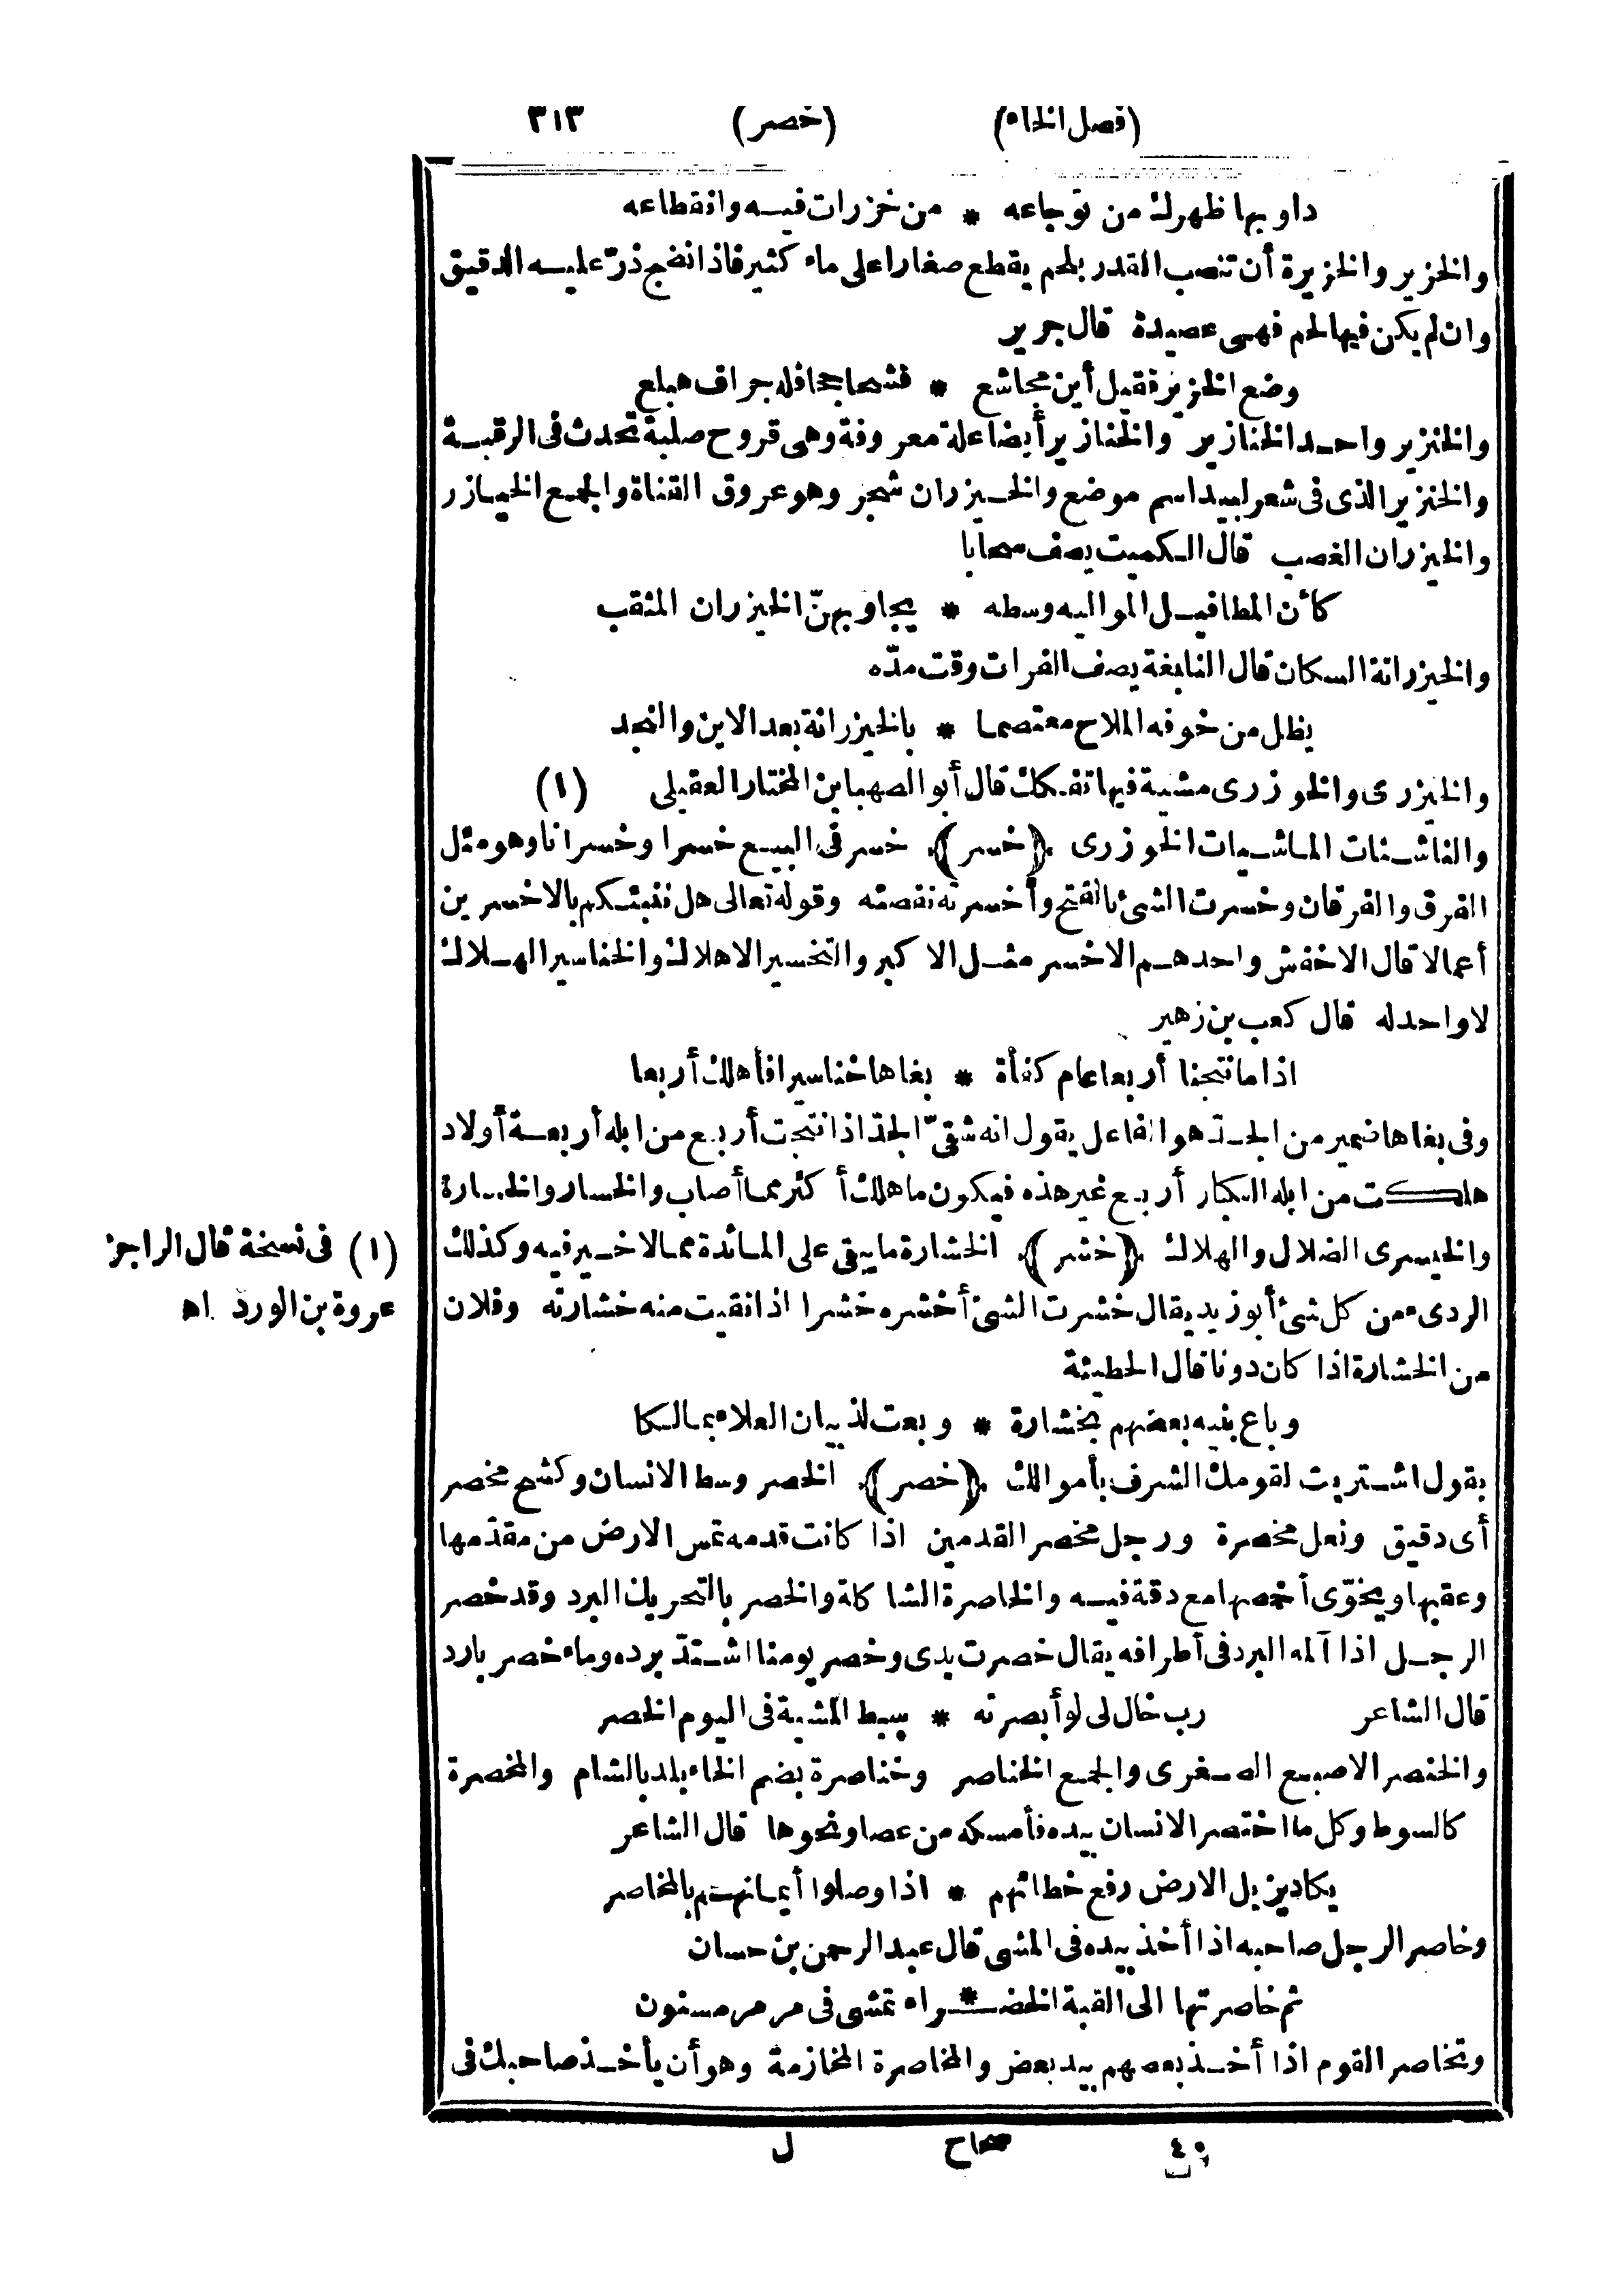 (فصل الخاء) (خصر) ٣١٣
داو بها ظهرك من توجاعه * من خزرات فيه وانقطاعه
والخزير والخزيرة أن تنصب القدر بلحم يقطع صغارا على ماء كثير فاذا نضج ذرّ عليه الدقيق
وان لم يكن فيها لحم فهى عصيدة قال جرير
وضع الخزير فقيل أين مجاشع * فشحا جحافله جراف هبلع
والخنزير واحد الخنازير والخنازير أيضا علة معروفة وهى قروح صلبة تحدث فى الرقبة
والخنزير الذى فى شعر لبيد اسم موضع والخيزران شجر وهو عروق القناة والجمع الخيازر
والخيزران القصب قال الكميت يصف سحابا
كأن المطافيل المواليه وسطه * يجاوبهنّ الخيزران المثقب
والخيزرانة السكان قال النابغة يصف الفرات وقت مدّه
يظل من خوفه الملاح معتصما * بالخيزرانة بعد الاين والنجد
والخيزرى والخوزرى مشية فيها تفكك قال أبو الصهبا بن المختار العقيلى (١)
والناشئات الماشيات الخوزرى ﴿خسر﴾ خسر فى البيع خسرا وخسرانا وهو مثل
الفرق والفرقان وخسرت الشئ بالفتح وأخسرته نقصته وقوله تعالى هل ننبئكم بالاخسرين
أعمالا قال الاخفش واحدهم الاخسر مثل الاكبر والتخسير الاهلاك والخناسير الهلاك
لا واحد له قال كعب بن زهير
اذا ما نتجنا أربعا عام كفأة * بغاها خناسيرا فأهلك أربعا
وفى بغاها ضمير من الجدّ هو الفاعل يقول انه شقىّ الجدّ اذا نتجت أربع من ابله أربعة أولاد
هلكت من ابله الكبار أربع غير هذه فيكون ما هلك أكثر مما أصاب والخسار والخسارة
والخيسرى الضلال والهلاك ﴿خشر﴾ الخشارة ما يبقى على المائدة مما لا خير فيه وكذلك
الردىء من كل شئ أبو زيد يقال خشرت الشئ أخشره خشرا اذا نقيت منه خشارته وفلان
من الخشارة اذا كان دونا قال الحطيئة
وباع بنيه بعضهم بخشارة * وبعت لذبيان العلاء بمالكا
يقول اشتريت لقومك الشرف بأموالك ﴿خصر﴾ الخصر وسط الانسان وكشح مخصر
أى دقيق ونعل مخصرة ورجل مخصر القدمين اذا كانت قدمه تمس الارض من مقدّمها
وعقبها ويخوّى أخمصها مع دقة فيه والخاصرة الشاكلة والخصر بالتحريك البرد وقد خصر
الرجل اذا آلمه البرد فى أطرافه يقال خصرت يدى وخصر يومنا اشتدّ برده وماء خصر بارد
قال الشاعر رب خال لى لو أبصرته * سبط المشية فى اليوم الخصر
والخنصر الاصبع الصغرى والجمع الخناصر وخناصرة بضم الخاء بلد بالشام والمخصرة
كالسوط وكل ما اختصر الانسان بيده فأمسكه من عصا ونحوها قال الشاعر
يكاد يزيل الارض رفع خطائهم * اذا وصلوا أيمانهم بالمخاصر
وخاصر الرجل صاحبه اذا أخذ بيده فى المشى قال عبد الرحمن بن حسان
ثم خاصرتها الى القبة الخضـ * ـراء تمشى فى مرمر مسنون
وتخاصر القوم اذا أخذ بعضهم بيد بعض والمخاصرة المخازمة وهو أن يأخذ صاحبك فى
(١) فى نسخة قال الراجز
عروة بن الورد اه
٤٠ صحاح ل